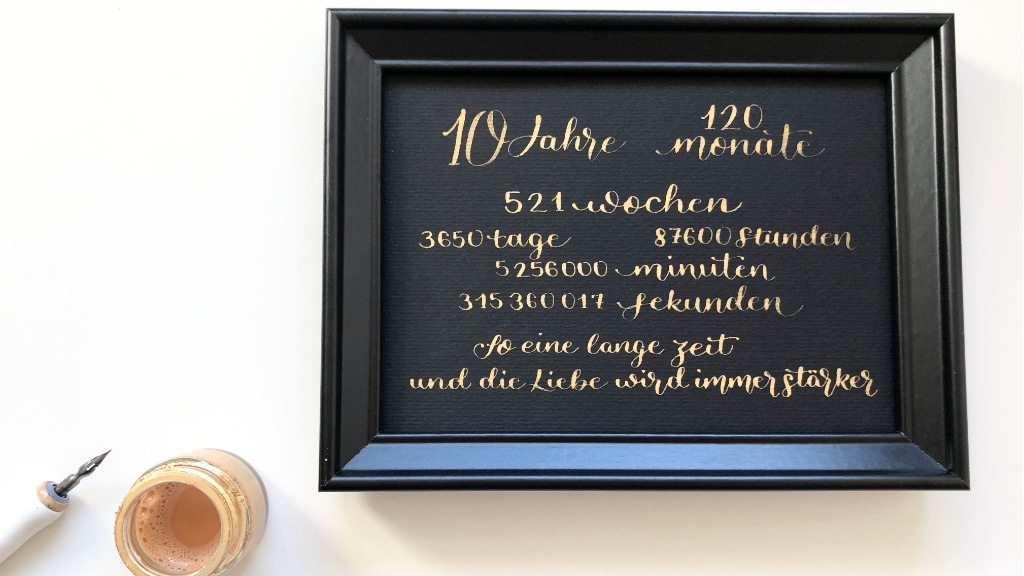 10 Jahre 120 monate
521 wochen
3650 tage 87600 Stunden
5256000 minuten
315 360 017 Sekunden
So eine lange zeit
und die Liebe wird immer stärker